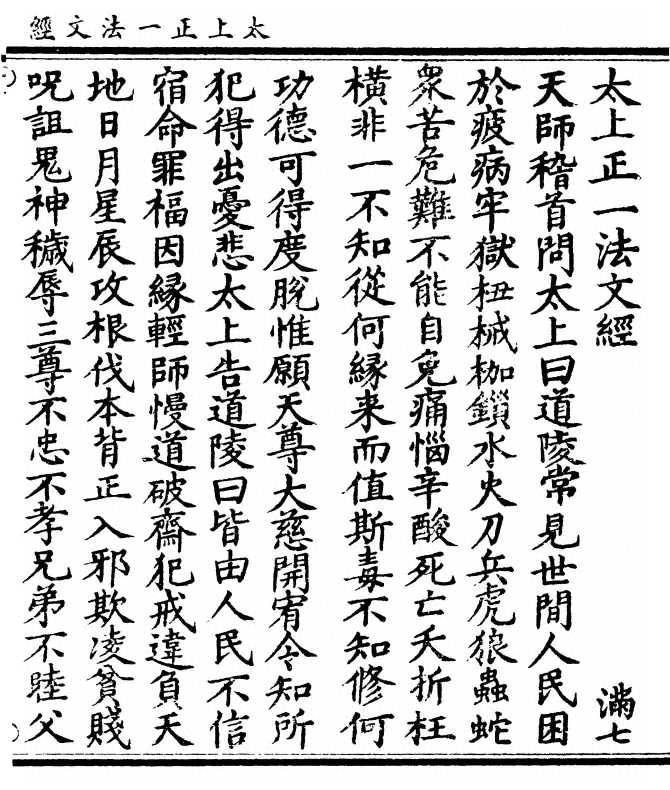 太上正一法文經
太上正一法文經 滿七
天師稽首問太上曰道陵常見世間人民困
於疲病牢獄杻械枷鎖水火刀兵虎狼蟲蛇
衆苦危難不能自免痛惱辛酸死亡夭折枉
橫非一不知從何緣来而值斯毒不知修何
功德可得度脫惟願天尊大慈開宥令知所
犯得出憂悲太上告道陵曰皆由人民不信
宿命罪福因緣輕師慢道破齋犯戒違負天
地日月星辰攻根伐本背正入邪欺凌貧賤
呪詛鬼神穢辱三尊不忠不孝兄弟不睦父